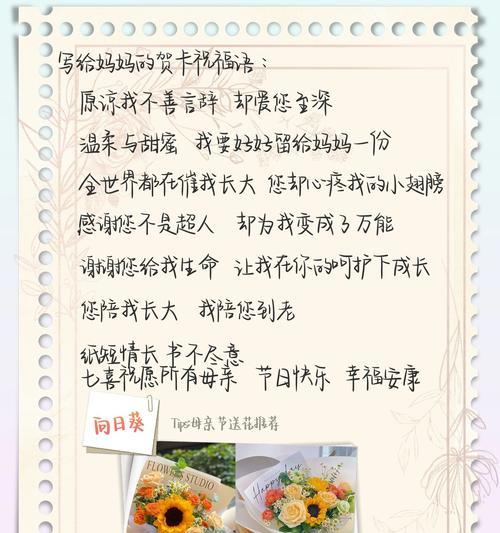 写给妈妈的贺卡祝福语：
原谅我不善言辞 却爱您至深
温柔与甜蜜 我要好好留给妈妈一份
全世界都在催我长大 您却心疼我的小翅膀
感谢您不是超人 却为我变成了万能
谢谢您给我生命 让我在你的呵护下成长
您陪我长大 我陪您到老
纸短情长 书不尽意
七喜祝愿所有母亲 节日快乐 幸福安康
向日葵
Tips母亲节送花推荐
FLOWER STUDIO
Happy